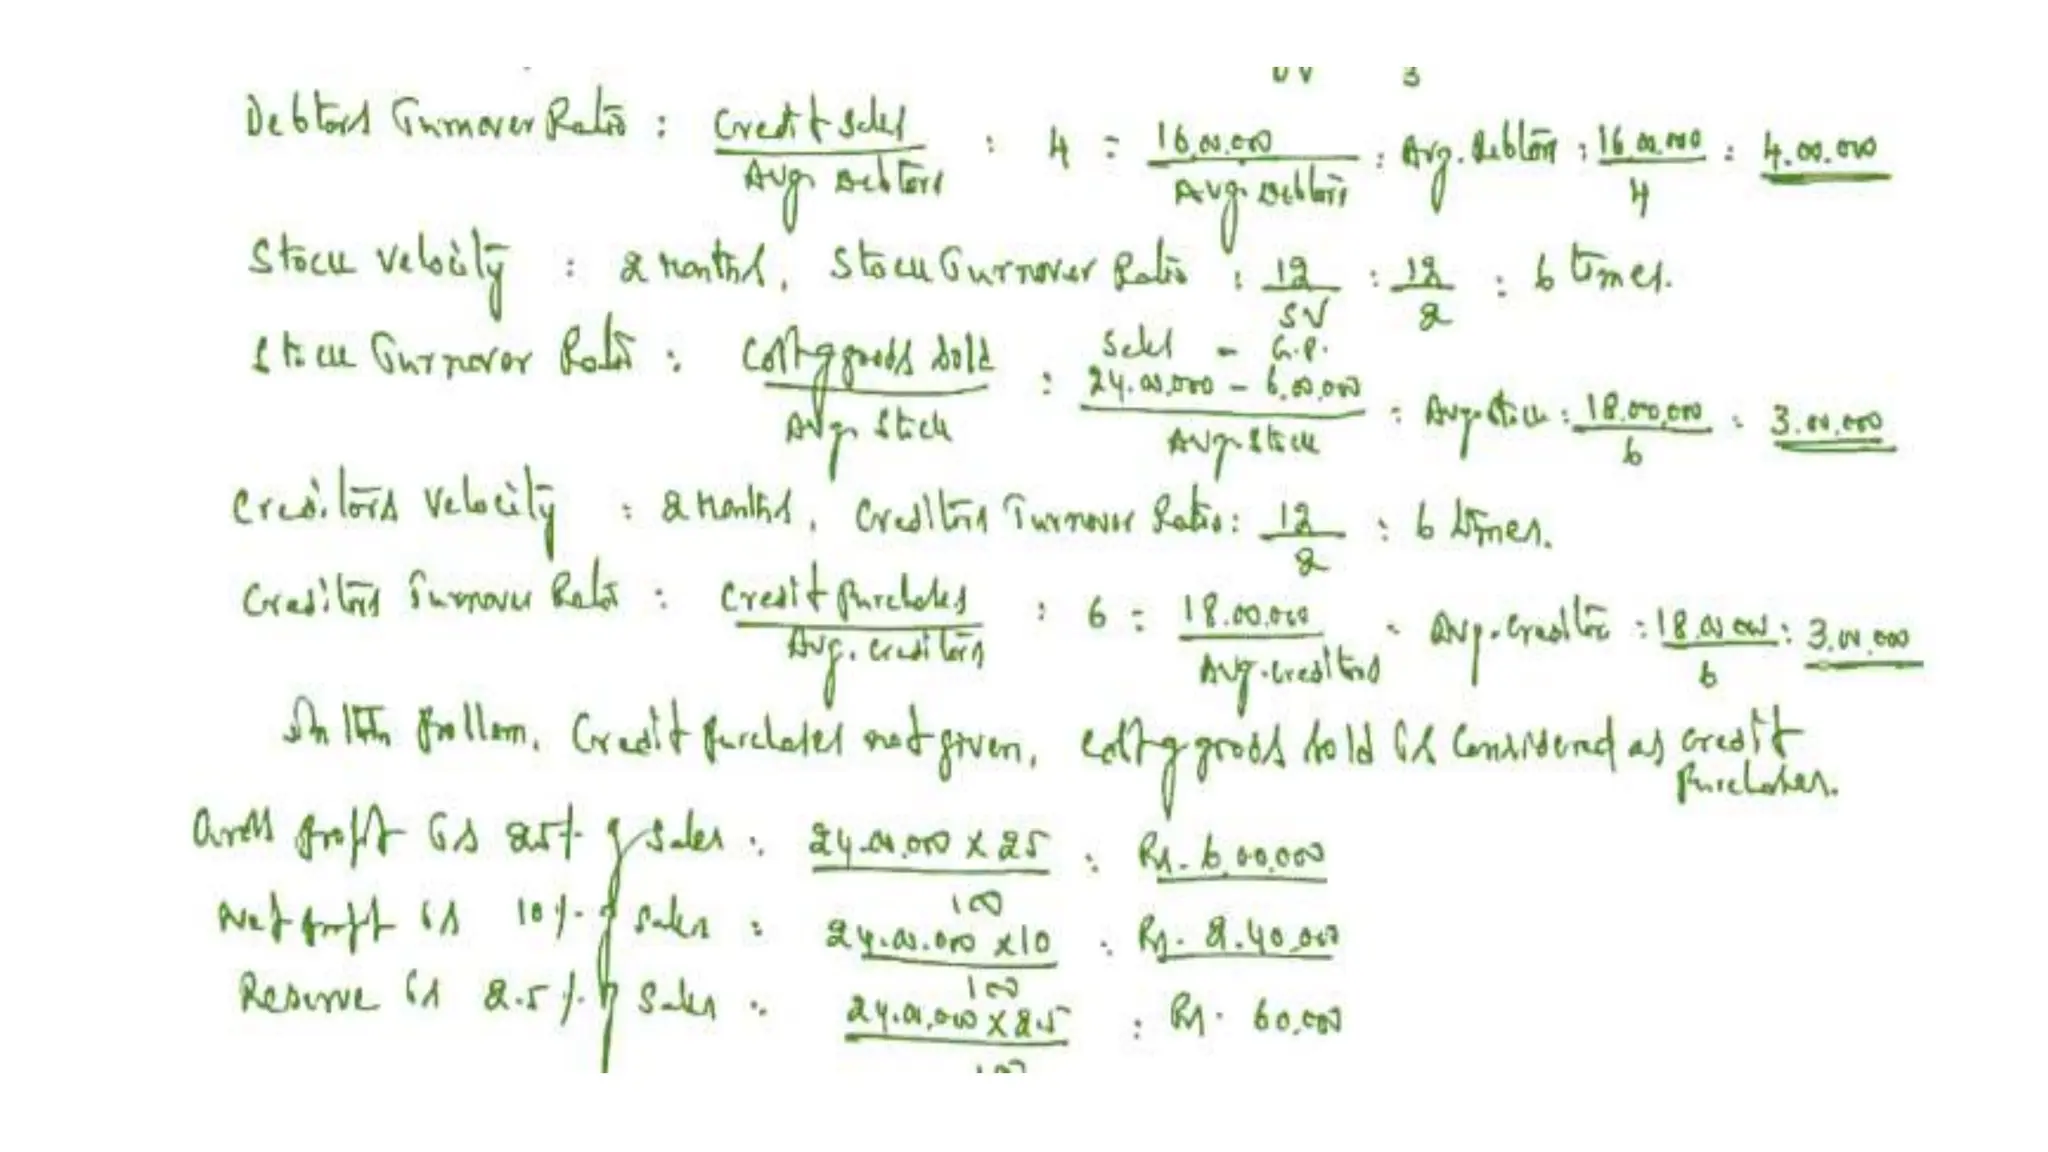 DV 3
Debtors Turnover Ratio : Credit Sales / Avg. Debtors : 4 = 16,00,000 / Avg. Debtors : Avg. debtors : 16,00,000 / 4 : 4,00,000
Stock Velocity : 2 Months, Stock Turnover Ratio : 12 / SV : 12 / 2 : 6 times.
Stock Turnover Ratio : Cost of goods sold / Avg. Stock : Sales - G.P. 24,00,000 - 6,00,000 / Avg. Stock : Avg. Stock : 18,00,000 / 6 : 3,00,000
Creditors Velocity : 2 Months, Creditors Turnover Ratio : 12 / 2 : 6 times.
Creditors Turnover Ratio : Credit Purchases / Avg. creditors : 6 = 18,00,000 / Avg. creditors : Avg. creditors : 18,00,000 / 6 : 3,00,000
In this problem, Credit purchases not given, cost of goods sold is considered as credit
purchases.
Gross profit is 25% of sales : 24,00,000 x 25 / 100 : Rs. 6,00,000
Net profit is 10% of sales : 24,00,000 x 10 / 100 : Rs. 2,40,000
Reserve is 2.5% of sales : 24,00,000 x 2.5 / 100 : Rs. 60,000